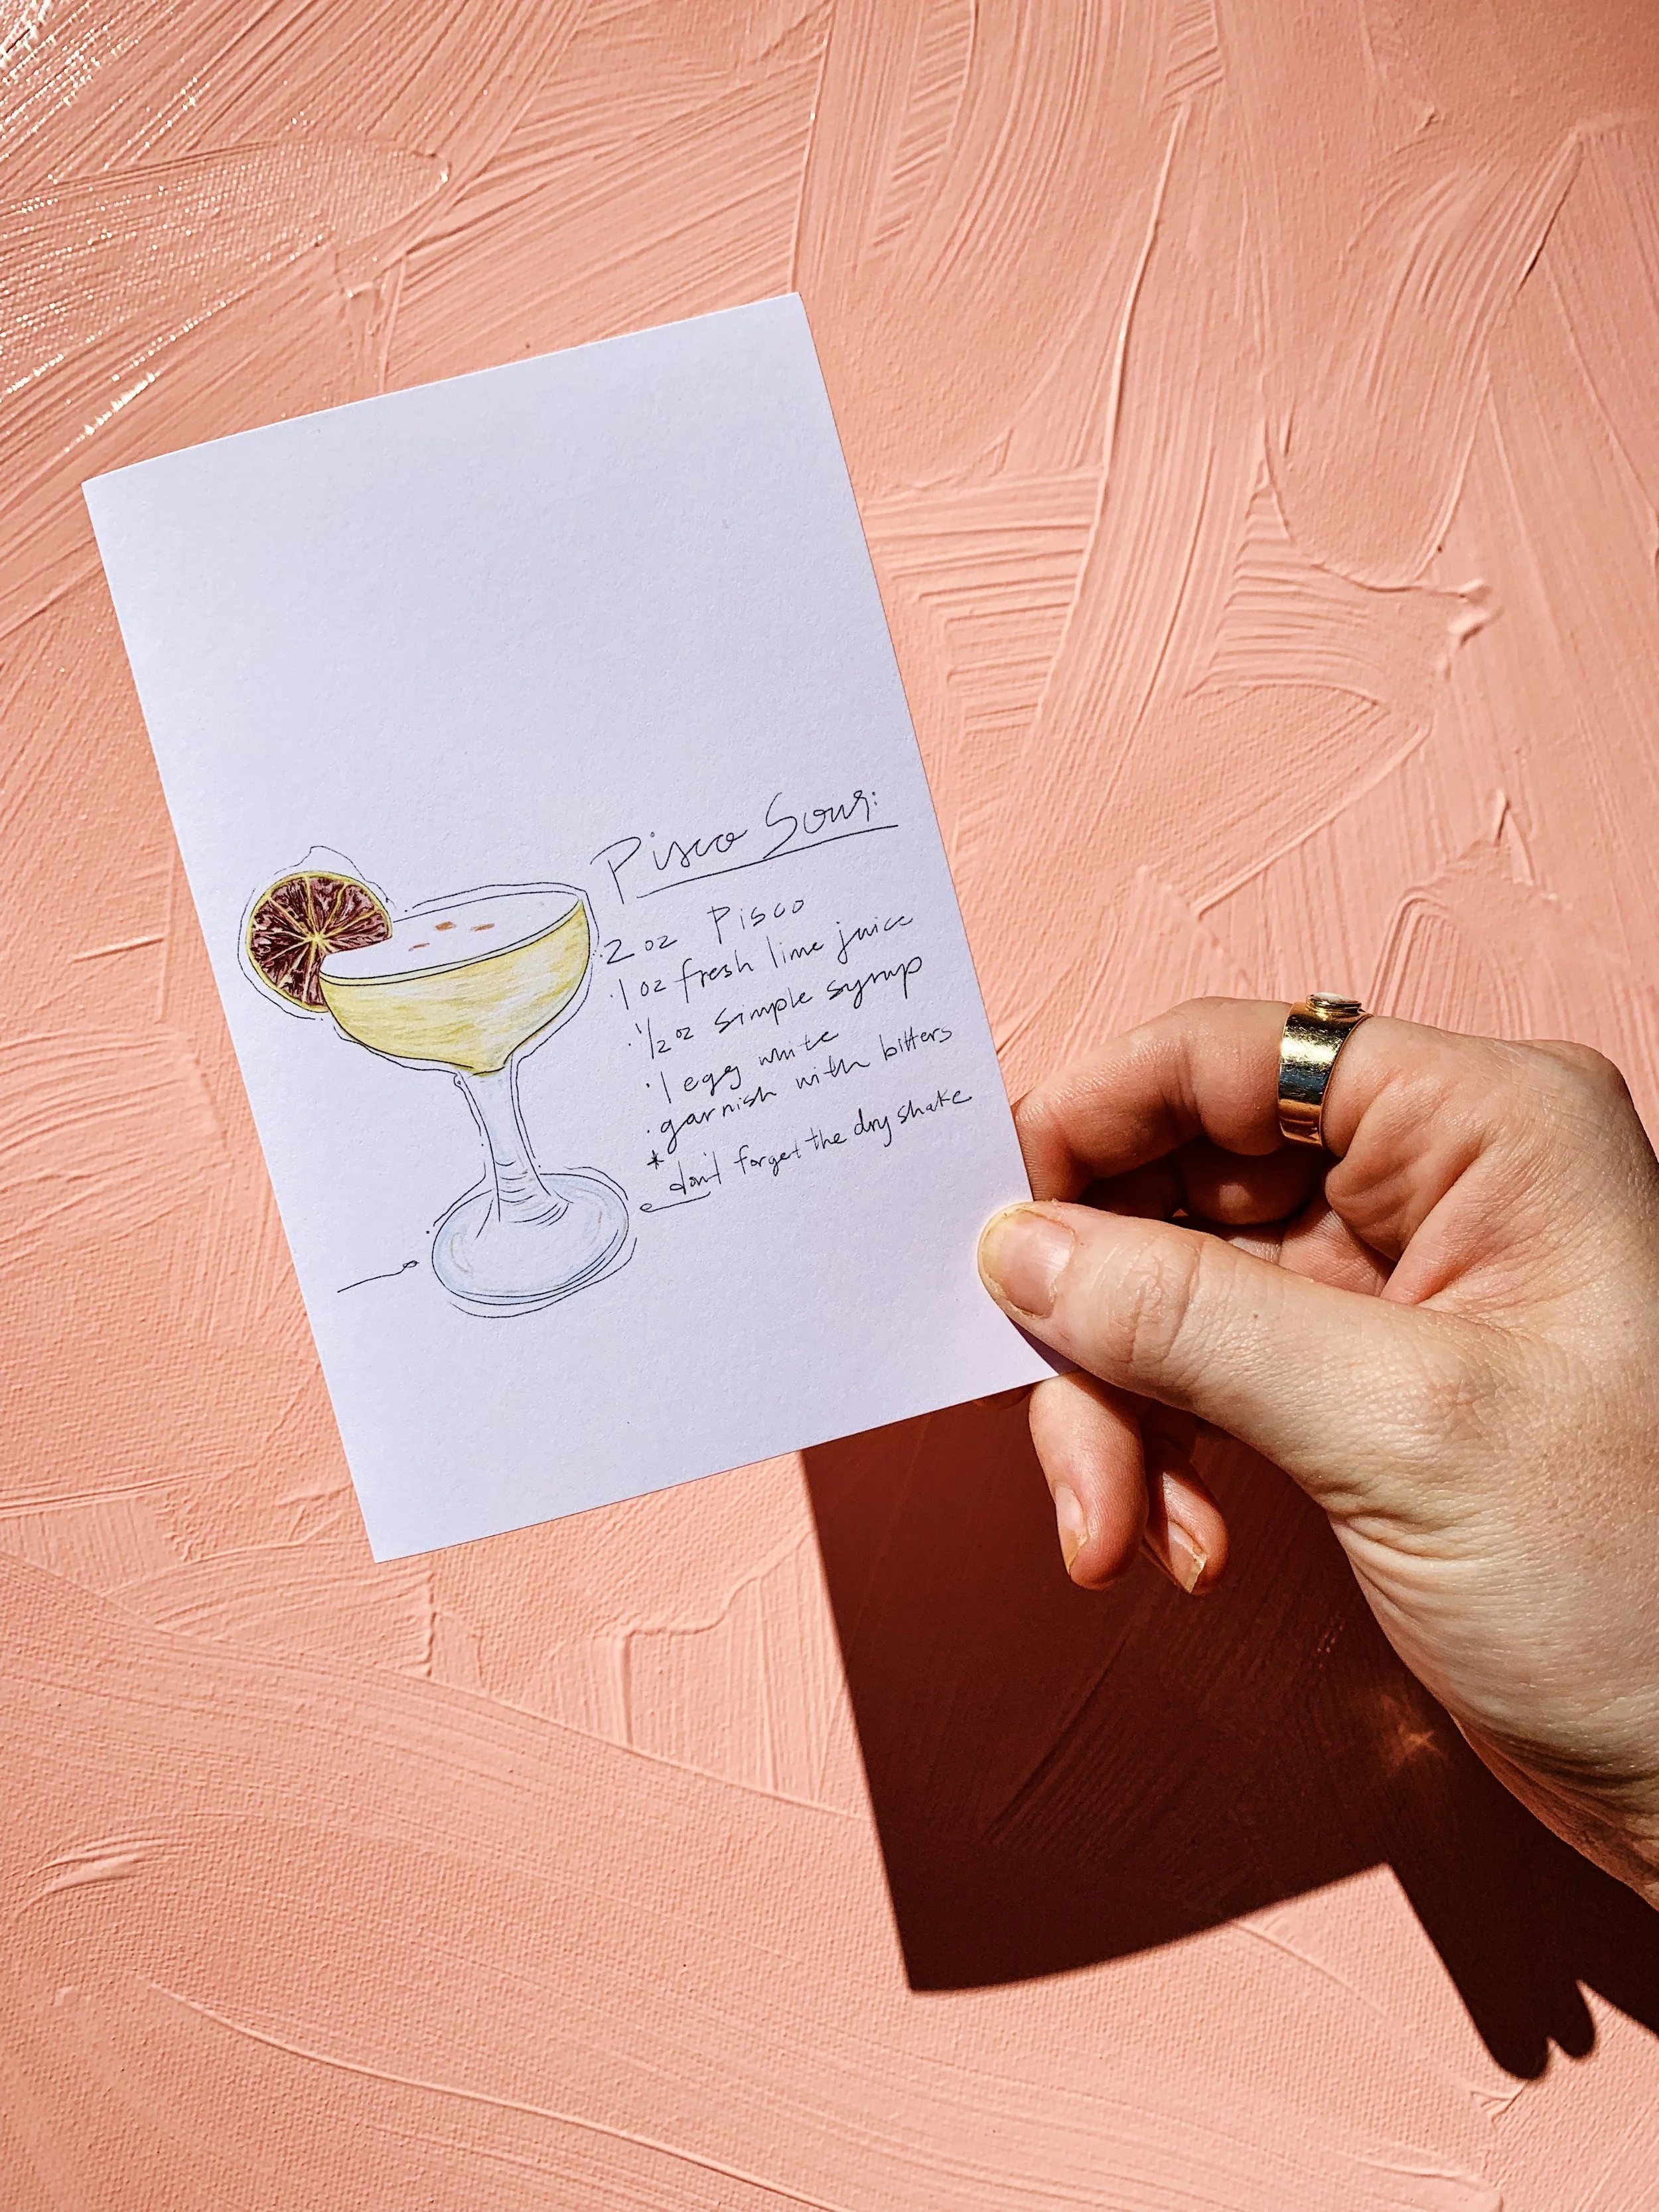 Pisco Sour:
· 2 oz Pisco
· 1 oz fresh lime juice
· 1/2 oz simple syrup
· 1 egg white
· garnish with bitters
* don't forget the dry shake